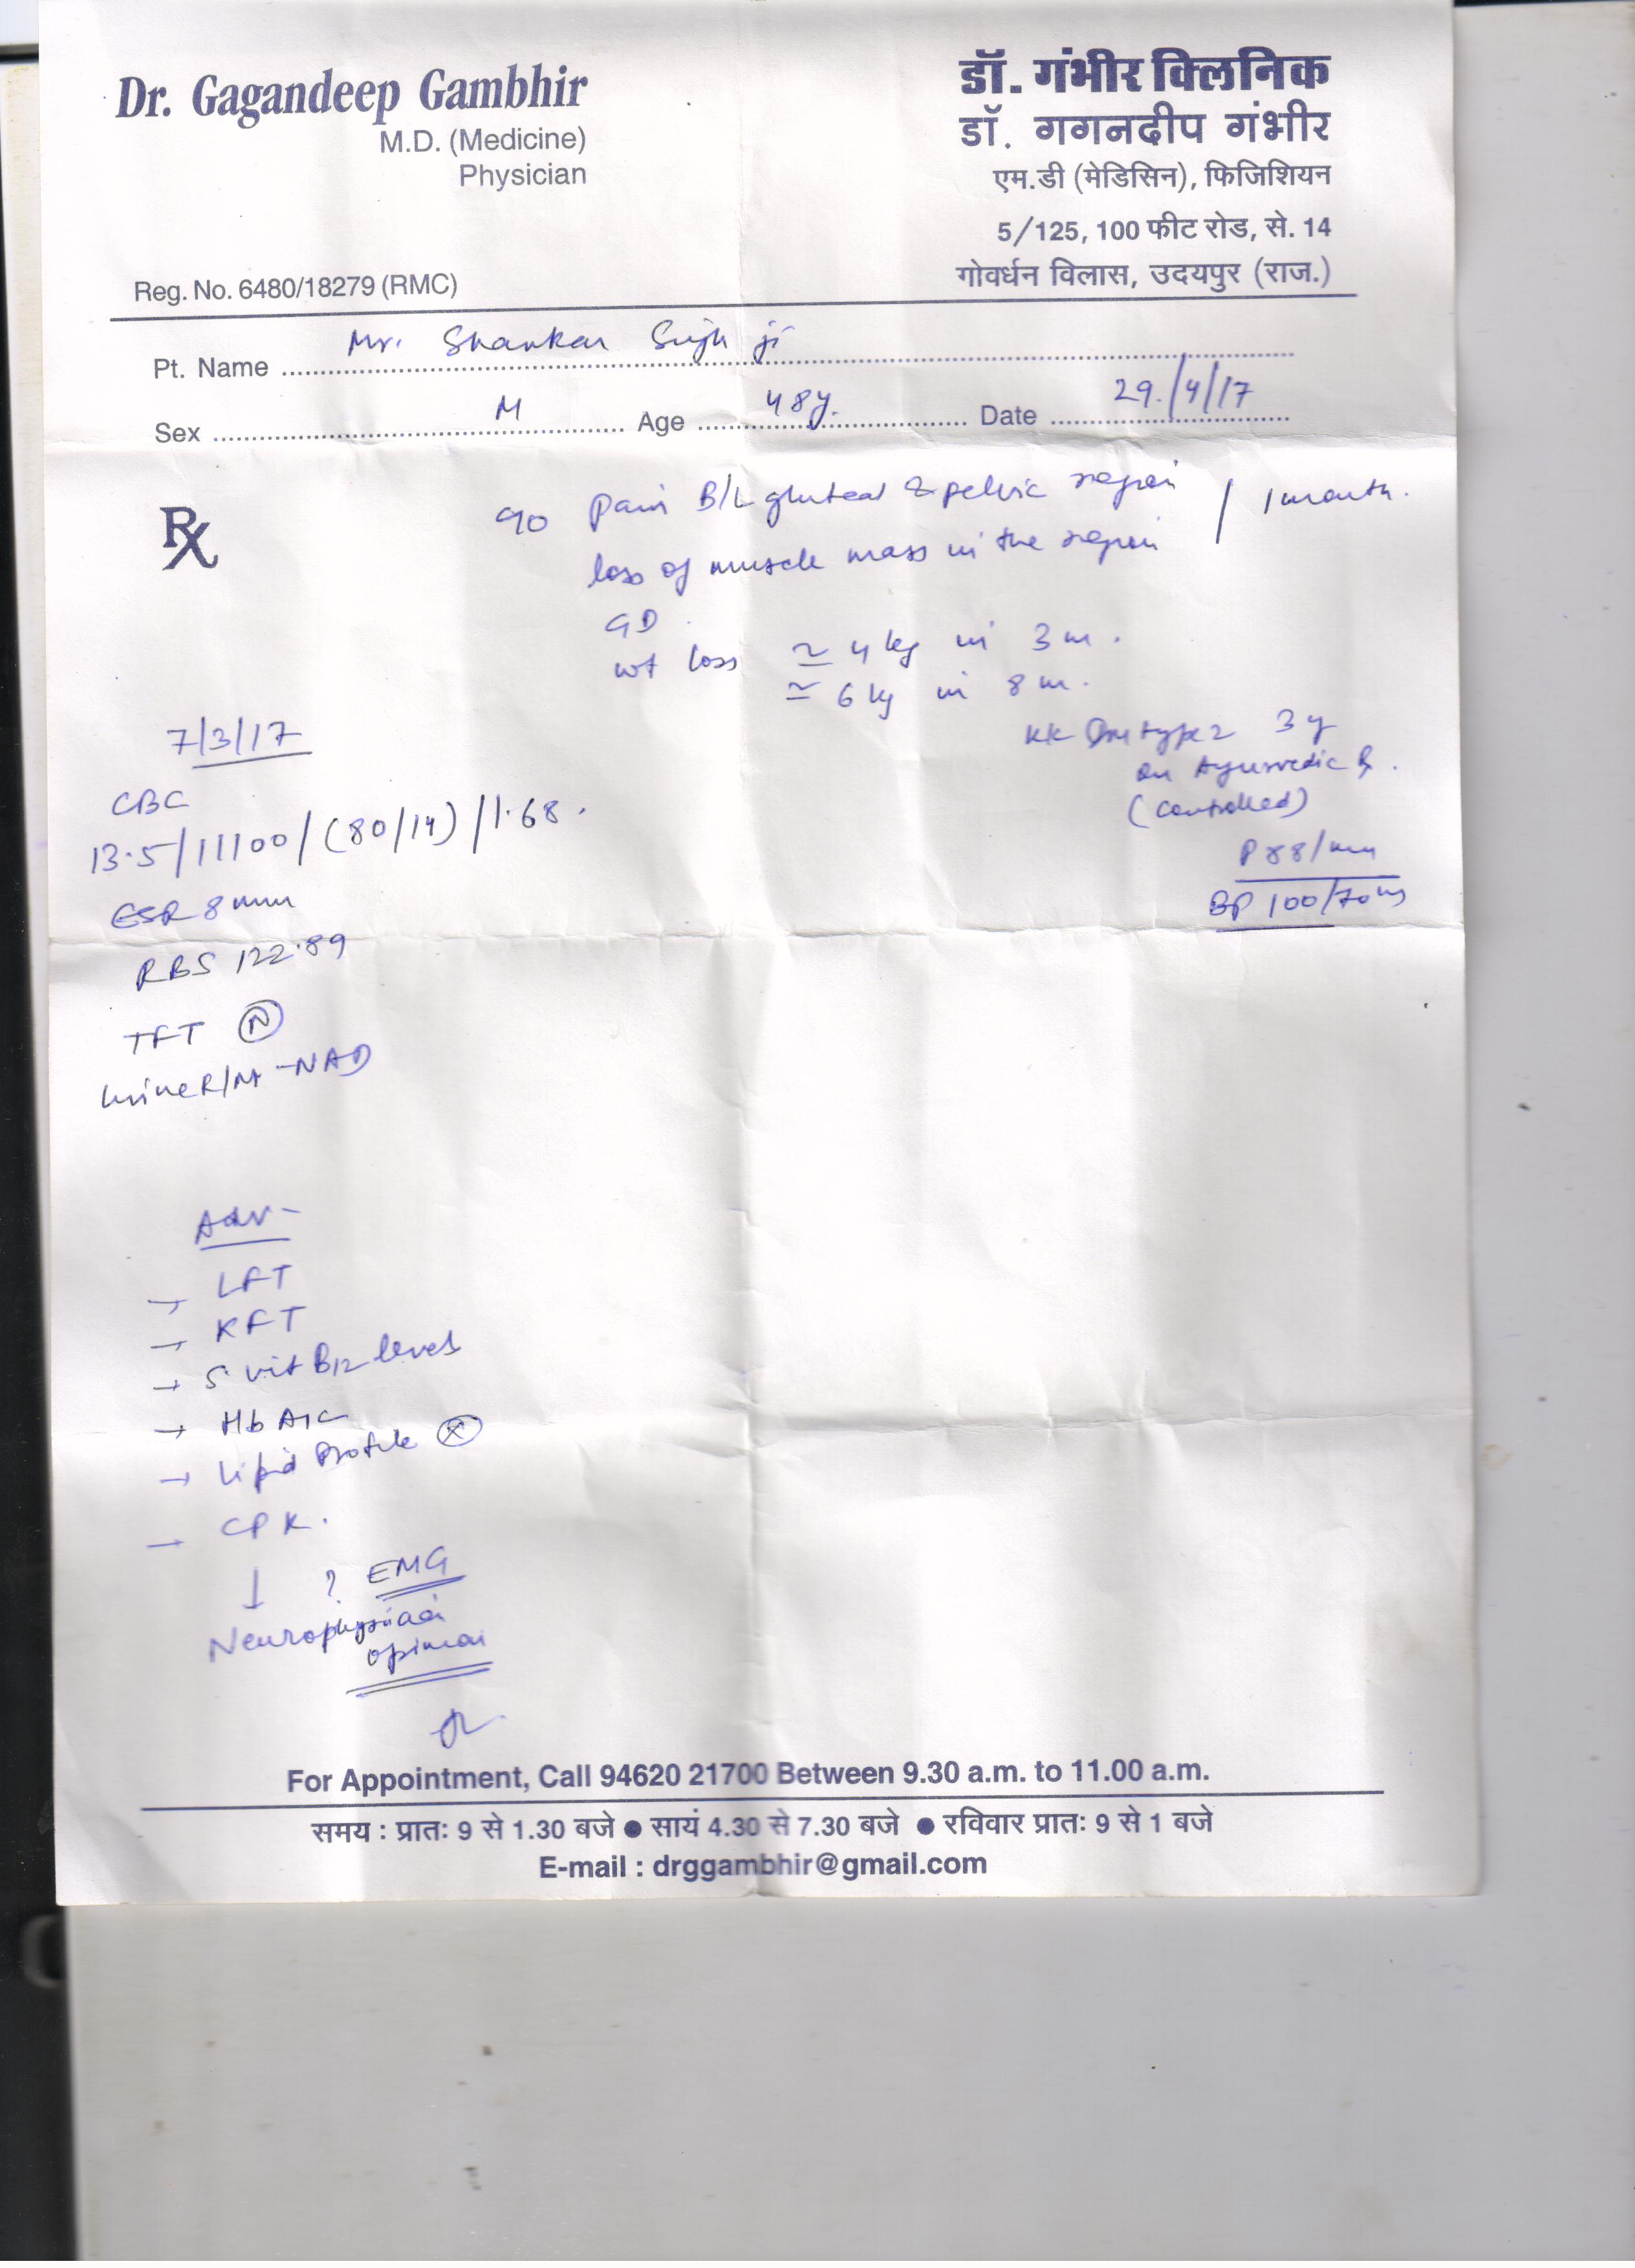 Dr. Gagandeep Gambhir
M.D. (Medicine)
Physician
Reg. No. 6480/18279 (RMC)
डॉ. गंभीर क्लिनिक
डॉ. गगनदीप गंभीर
एम.डी (मेडिसिन), फिजिशियन
5/125, 100 फीट रोड, से. 14
गोवर्धन विलास, उदयपुर (राज.)
Pt. Name Mr. Shankar Singh ji
Sex M Age 48y. Date 29/4/17
Rx
c/o Pain B/L gluteal & pelvic region / 1 month.
loss of muscle mass in the region
GD
wt loss ≃ 4 kg in 3 m.
≃ 6 kg in 8 m.
KK Dm type 2 3 y
on Ayurvedic Rx.
(controlled)
P 88/min
BP 100/70
7/3/17
CBC
13.5/11100/(80/14)/1.68.
ESR 8 mm
RBS 122.89
TFT N
Urine R/M - NAD
Adv -
→ LFT
→ KFT
→ S. vit B12 levels
→ HbA1c
→ Lipid Profile
→ CPK.
↓ ? EMG
Neurophysician
opinion
For Appointment, Call 94620 21700 Between 9.30 a.m. to 11.00 a.m.
समय : प्रातः 9 से 1.30 बजे ● सायं 4.30 से 7.30 बजे ● रविवार प्रातः 9 से 1 बजे
E-mail : drggambhir@gmail.com